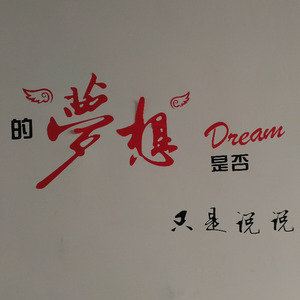 的“夢想”Dream
是否
只是说说